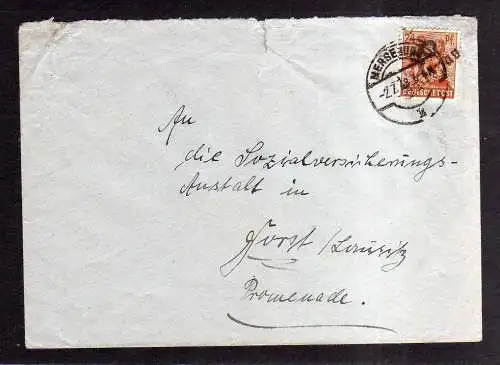 PF
MERSEBURG
-2.7.
DEUTSCHE POST
An
die Sozialversicherungs-
Anstalt in
Forst /Lausitz
Promenade.